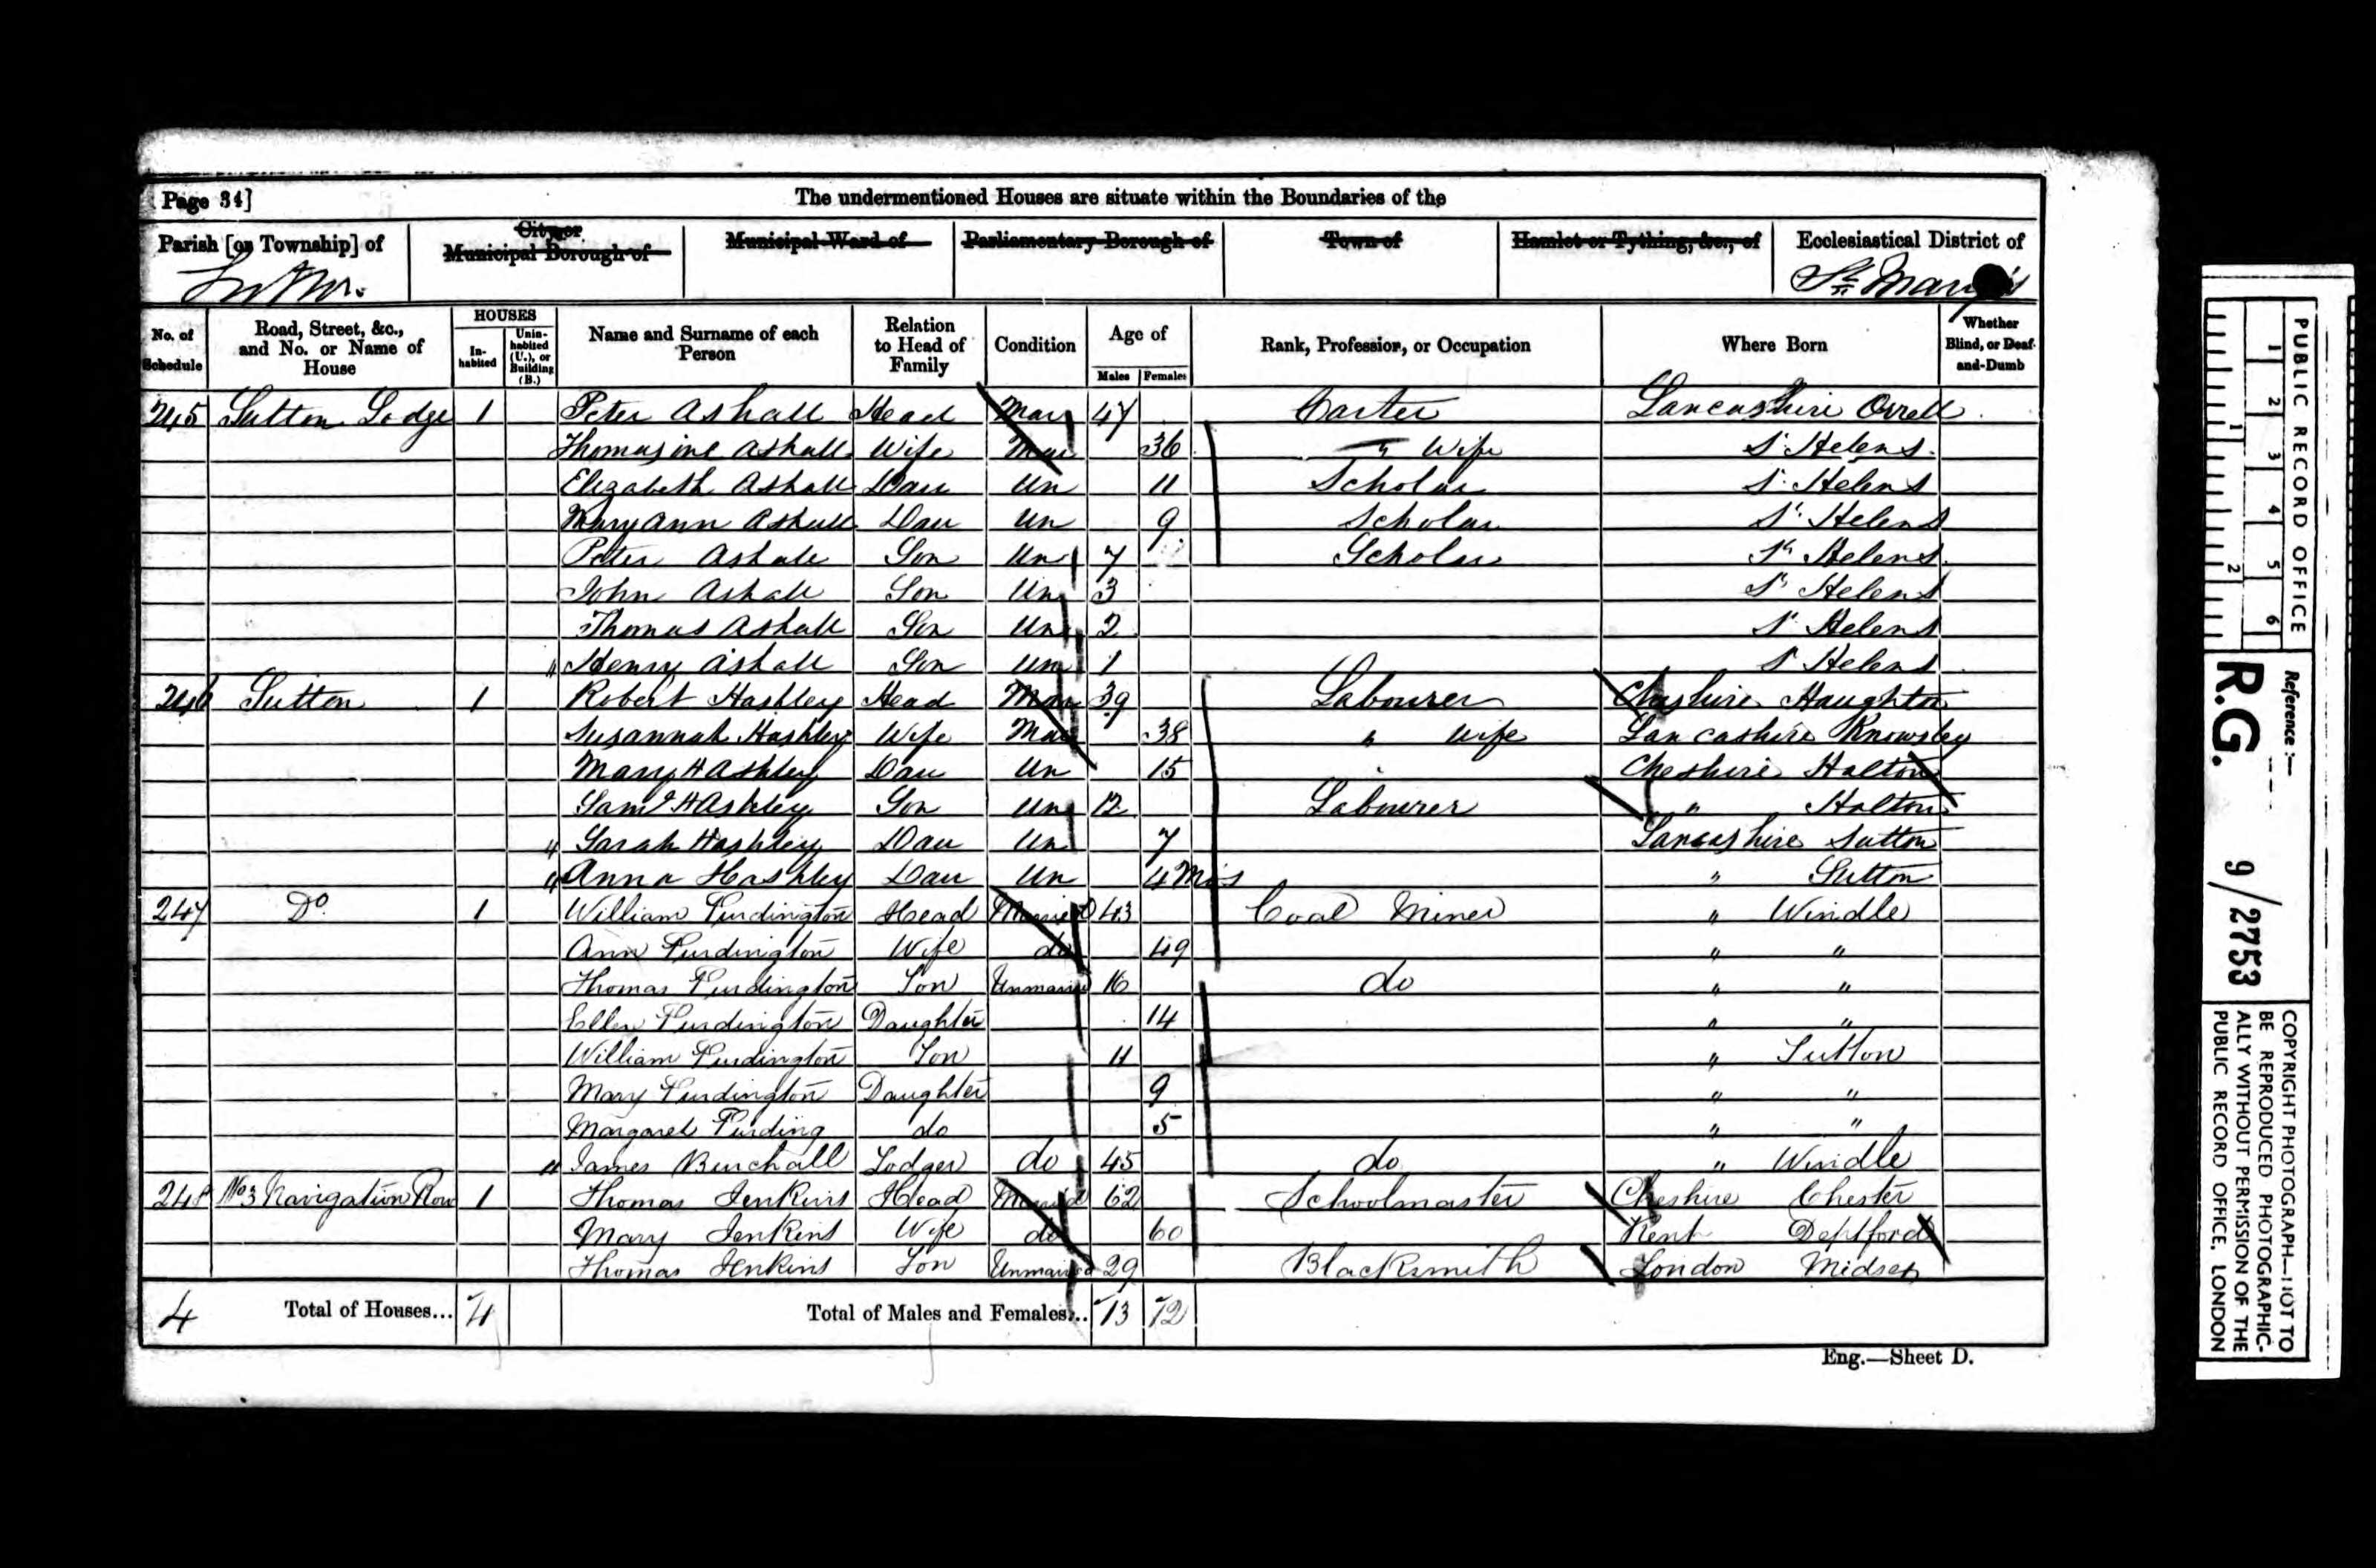 Page 34] The undermentioned Houses are situate within the Boundaries of the
Parish [or Township] of City or Municipal Borough of Municipal Ward of Parliamentary Borough of Town of Hamlet or Tything, &c., of Ecclesiastical District of
Sutton. St Mary's
No. of Schedule Road, Street, &c., and No. or Name of House HOUSES Inhabited Uninhabited (U.), or Building (B.) Name and Surname of each Person Relation to Head of Family Condition Age of Males Females Rank, Profession, or Occupation Where Born Whether Blind, or Deaf-and-Dumb
245 Sutton Lodge 1 Peter Ashall Head Mar 47 Carter Lancashire Orrell
Thomasine Ashall Wife Mar 36 " Wife St Helens
Elizabeth Ashall Dau Un 11 Scholar St Helens
Mary Ann Ashall Dau Un 9 Scholar St Helens
Peter Ashall Son Un 7 Scholar St Helens
John Ashall Son Un 3 St Helens
Thomas Ashall Son Un 2 St Helens
" Henry Ashall Son Un 1 St Helens
246 Sutton 1 Robert Hashley Head Mar 39 Labourer Cheshire Haughton
Susannah Hashley Wife Mar 38 " Wife Lancashire Knowsley
Mary Hashley Dau Un 15 Cheshire Halton
Saml Hashley Son Un 12 Labourer " Halton
" Sarah Hashley Dau Un 7 Lancashire Sutton
" Anna Hashley Dau Un 4 Mos " Sutton
247 Do 1 William Purdington Head Married 43 Coal Miner " Windle
Ann Purdington Wife do 49 " "
Thomas Purdington Son Unmarried 16 do " "
Ellen Purdington Daughter 14 " "
William Purdington Son 11 " Sutton
Mary Purdington Daughter 9 " "
Margaret Purding do 5 " "
" James Burchall Lodger do 45 do " Windle
248 No 3 Navigation Row 1 Thomas Jenkins Head Married 62 Schoolmaster Cheshire Chester
Mary Jenkins Wife do 60 Kent Deptford
Thomas Jenkins Son Unmarried 29 Blacksmith London Midsex
4 Total of Houses... 4 Total of Males and Females... 13 12
Eng.—Sheet D.
PUBLIC RECORD OFFICE
1 2 3 4 5 6
1 2
Reference :—
R.G. 9/2753
COPYRIGHT PHOTOGRAPH—NOT TO
BE REPRODUCED PHOTOGRAPHIC-
ALLY WITHOUT PERMISSION OF THE
PUBLIC RECORD OFFICE, LONDON